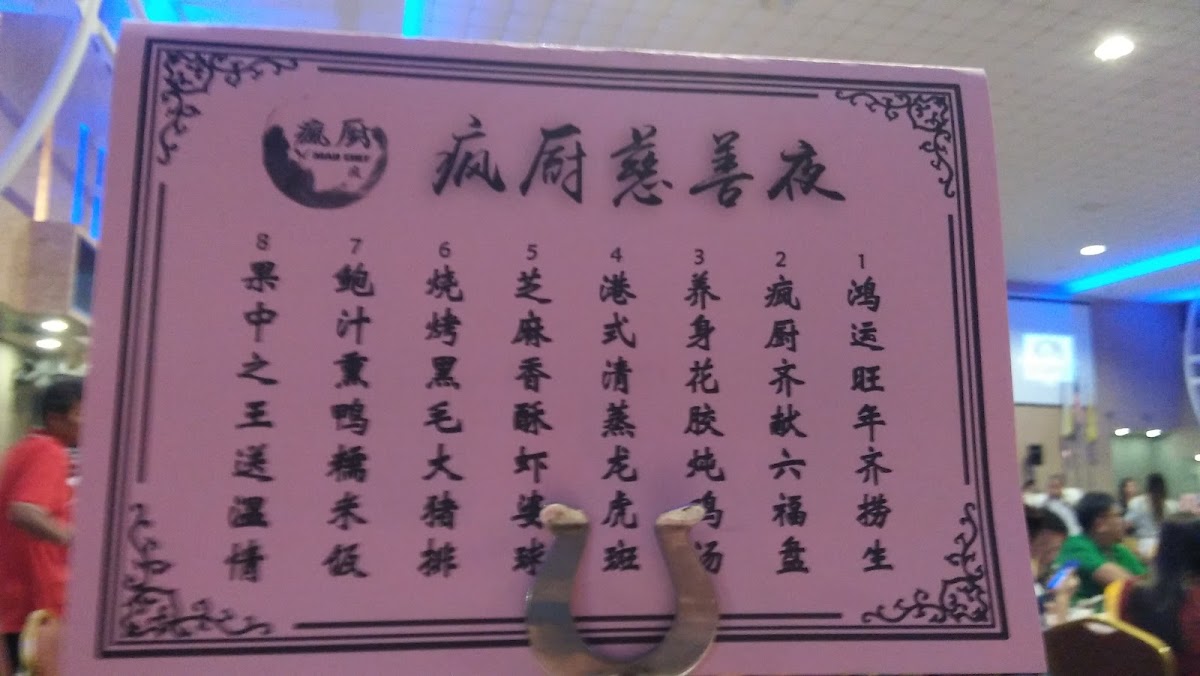 瘋厨
MAD CHEF
疯厨慈善夜
1 鸿运旺年齐捞生
2 疯厨齐献六福盘
3 养身花胶炖鸡汤
4 港式清蒸龙虎斑
5 芝麻香酥虾婆球
6 烧烤黑毛大猪排
7 鲍汁熏鸭糯米饭
8 果中之王送温情